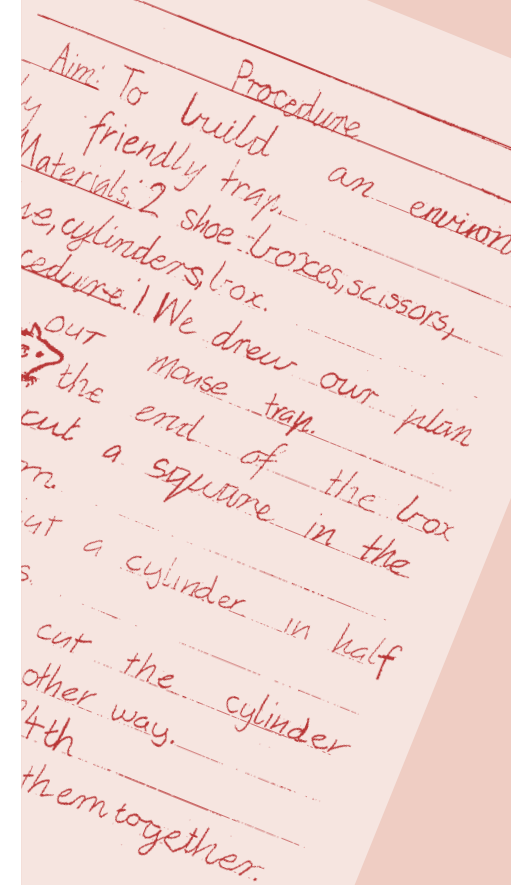 Procedure
Aim: To build an environ
y friendly trap.
Materials: 2 shoe boxes, scissors,
cylinders, box.
cedure: 1 We drew our plan
our mouse trap.
the end of the box
cut a square in the
a cylinder in half
cut the cylinder
other way.
4th
them together.